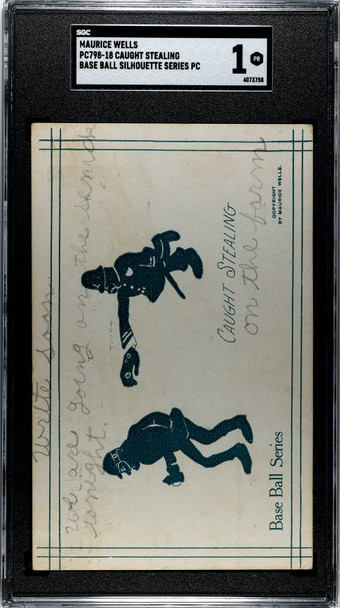 SGC
MAURICE WELLS
PC798-18 CAUGHT STEALING
BASE BALL SILHOUETTE SERIES PC
1 PR
4073758
Write soon
we are going on the
tonight.
CAUGHT STEALING
on the farm
COPYRIGHT
BY MAURICE WELLS.
Base Ball Series